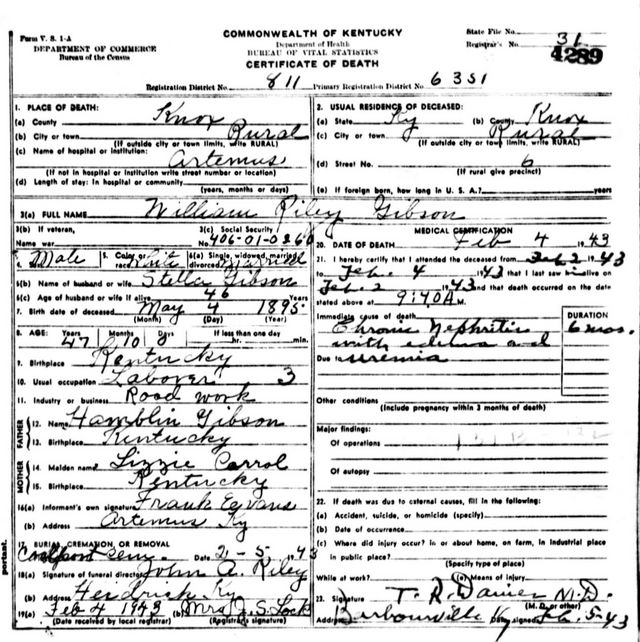 Form V. S. 1-A
COMMONWEALTH OF KENTUCKY
State File No.
DEPARTMENT OF COMMERCE
Department of Health
Registrar's No. 31
Bureau of the Census
BUREAU OF VITAL STATISTICS
4289
CERTIFICATE OF DEATH
Registration District No. 811 Primary Registration District No. 6351
1. PLACE OF DEATH:
(a) County Knox
(b) City or town Rural
(If outside city or town limits, write RURAL)
(c) Name of hospital or institution:
Artemus
(If not in hospital or institution write street number or location)
(d) Length of stay: In hospital or community (years, months or days)
2. USUAL RESIDENCE OF DECEASED:
(a) State Ky (b) County Knox
(c) City or town Rural
(If outside city or town limits, write RURAL)
(d) Street No. 6
(If rural give precinct)
(e) If foreign born, how long in U. S. A.? years
3(a) FULL NAME William Riley Gibson
3(b) If veteran,
Name war
3(c) Social Security
No. 406-01-0260
4. Male 5. Color or race White 6(a) Single, widowed, married, divorced Married
6(b) Name of husband or wife Stella Gibson
6(c) Age of husband or wife if alive 46 Years
7. Birth date of deceased May 4 1895
(Month) (Day) (Year)
8. AGE: Years Months Days If less than one day
47 10 0 hr. min.
9. Birthplace Kentucky
10. Usual occupation Laborer 3
11. Industry or business Road work
FATHER
12. Name Hamblin Gibson
13. Birthplace Kentucky
MOTHER
14. Maiden name Lizzie Carrol
15. Birthplace Kentucky
16(a) Informant's own signature Frank
(b) Address Artemus Ky
17. BURIAL, CREMATION, OR REMOVAL
Coalport Cem. Date 2-5-1943
18(a) Signature of funeral director John A. Riley
(b) Address Ky
19(a) Feb 4 1943 (b) Mrs. J. S. Lock
(Date received by local registrar) (Registrar's signature)
MEDICAL CERTIFICATION
20. DATE OF DEATH Feb 4 1943
21. I hereby certify that I attended the deceased from Feb 2 1943
to Feb. 4 1943 that I last saw h alive on
Feb 2 1943 and that death occurred on the date
stated above at 9:40 A M.
Immediate cause of death
DURATION
Chronic Nephritis
6 mos.
with edema and
Due to uremia
Other conditions
(Include pregnancy within 3 months of death)
Major findings:
Of operations
Of autopsy
22. If death was due to external causes, fill in the following:
(a) Accident, suicide, or homicide (specify)
(b) Date of occurrence
(c) Where did injury occur? in or about home, on farm, in industrial place
in public place?
(Specify type of place)
While at work? (e) Means of injury
23. Signature T. R. Davies M.D.
(M. D. or other)
Address Barbourville Ky Date signed Feb. 5-43
portant.